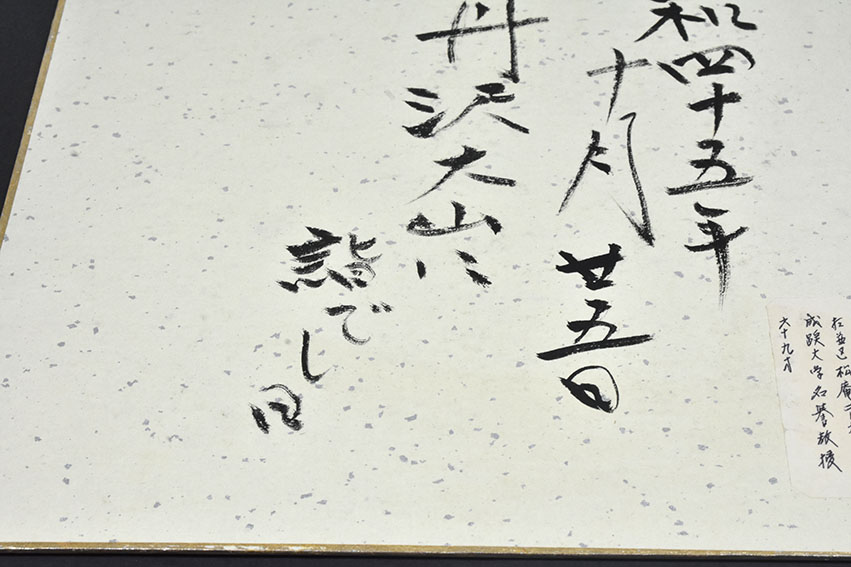 和四十五年
十月廿五日
丹沢大山に
詣でし日
松庵
成蹊大学名誉教授
六十九才